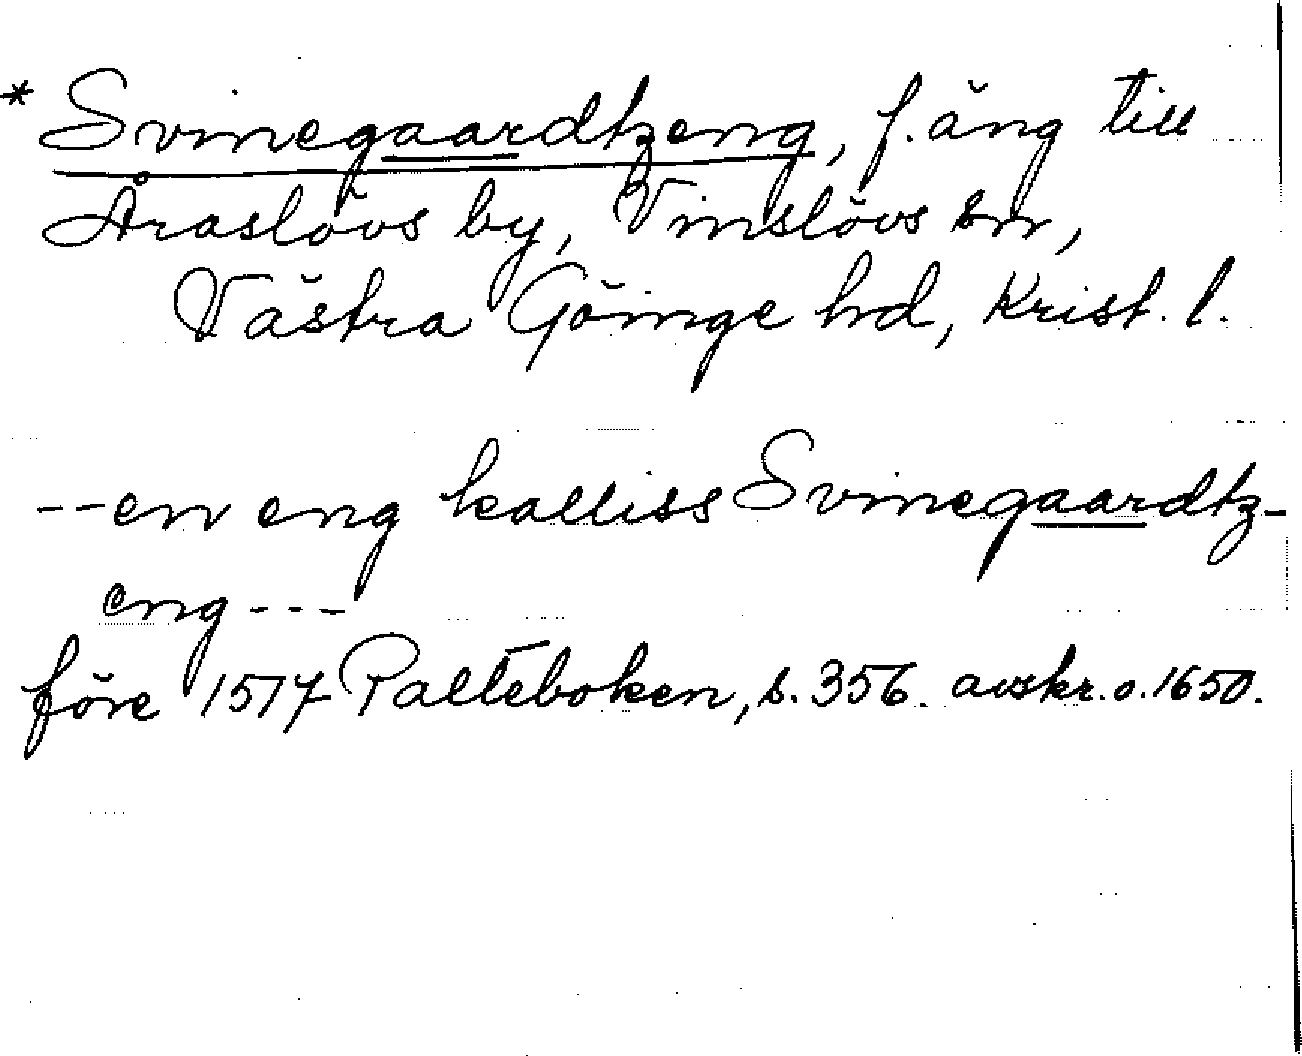 * Svinegaardtzeng, f. äng till
Åraslövs by, Vinslövs sn,
Västra Göinge hd, Krist. l.
-- en eng kalliss Svinegaardtz-
eng ---
före 1517 Palteboken, s. 356. avskr. o. 1650.